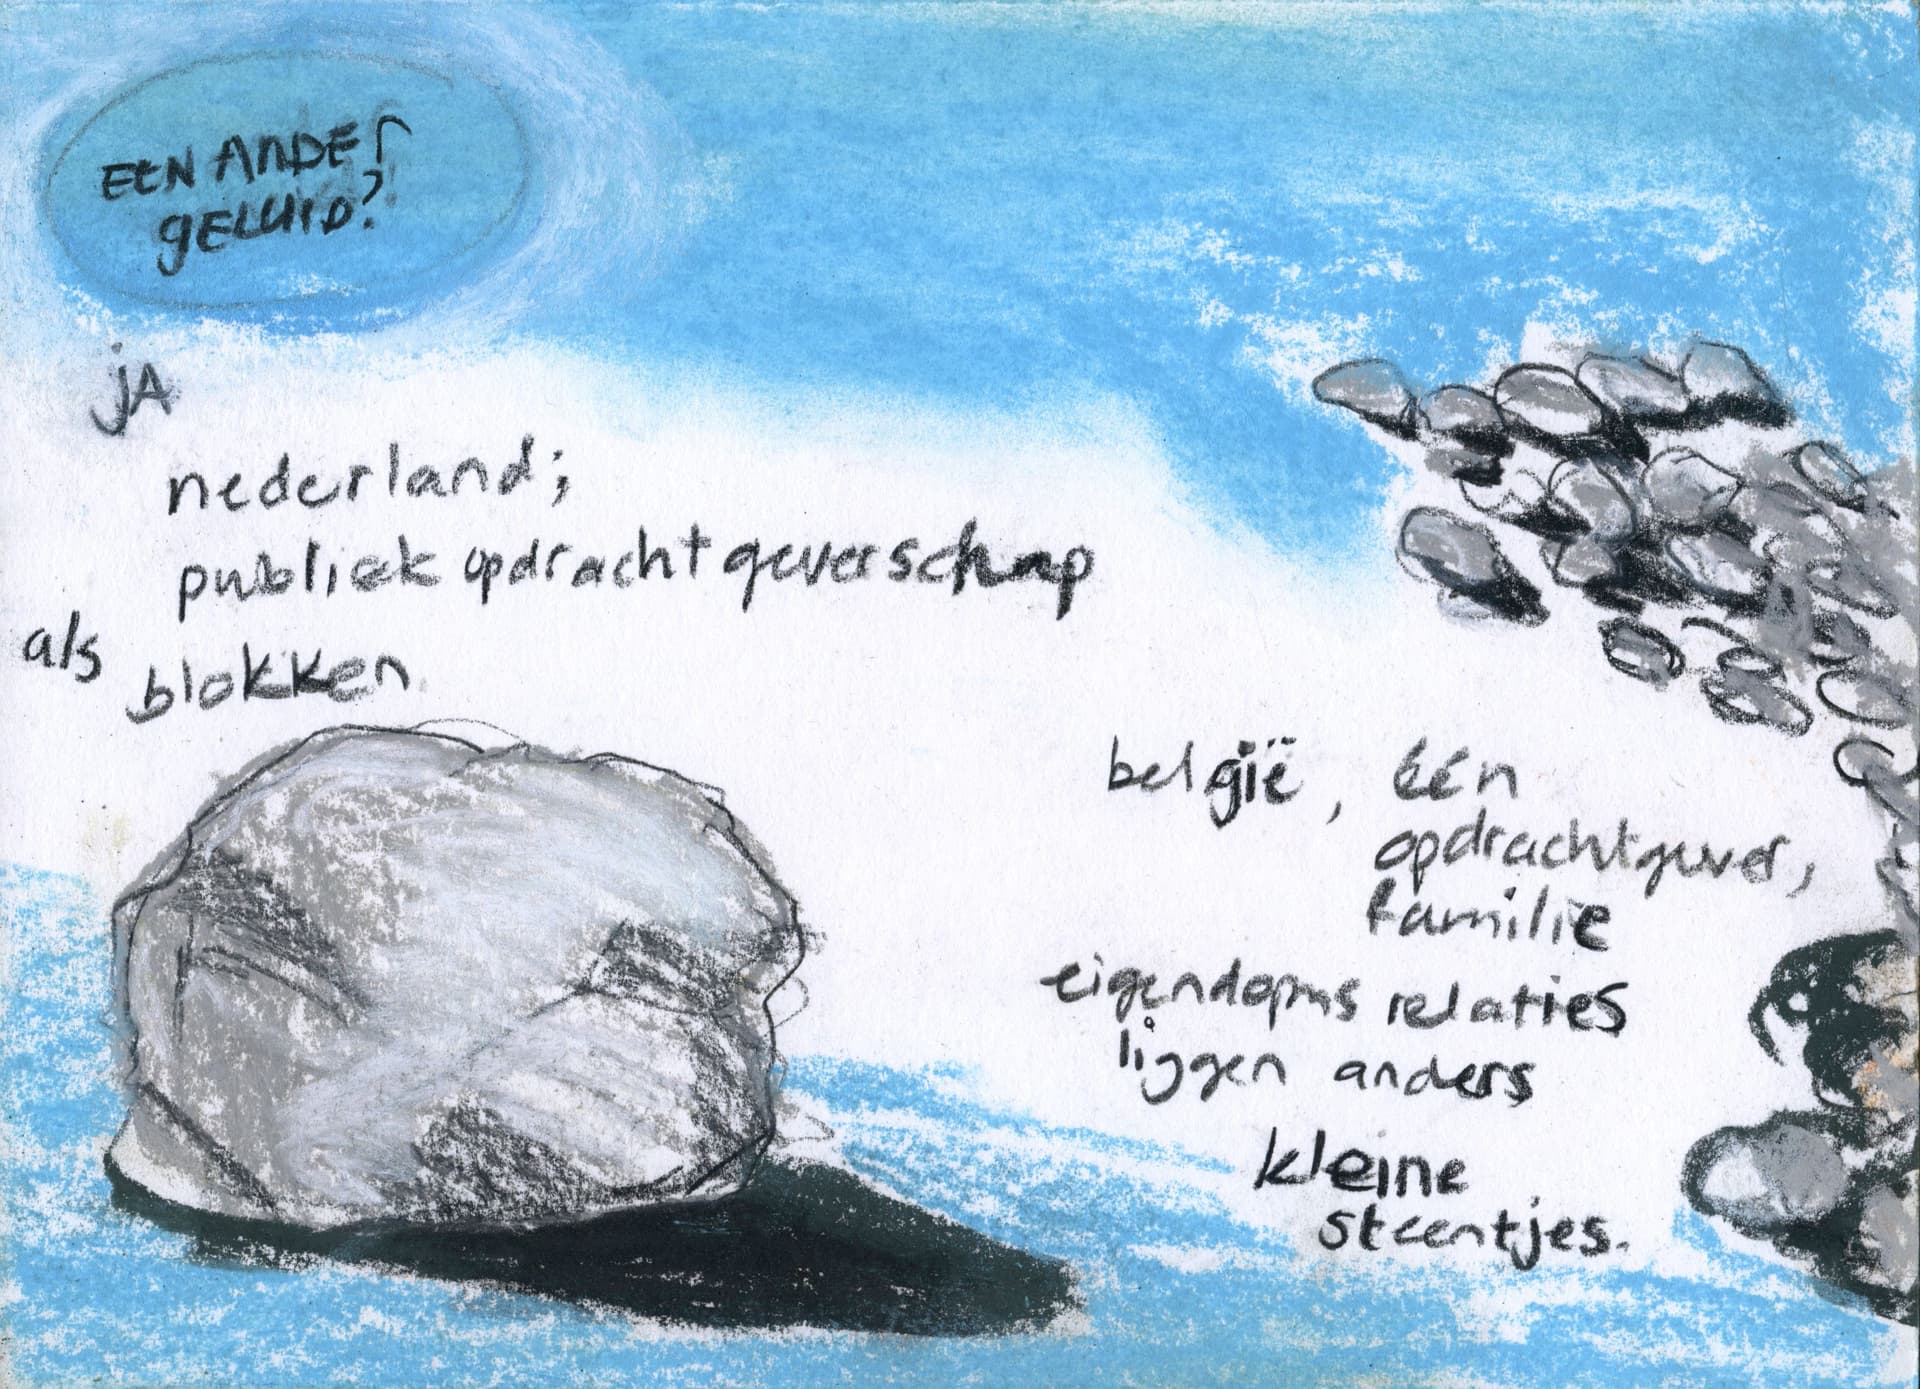 EEN ANDEr
GELUID?
jA
nederland;
publiek opdrachtgeverschap
als blokken
belgië, één
opdrachtgever,
familie
eigendoms relaties
liggen anders
kleine
steentjes.